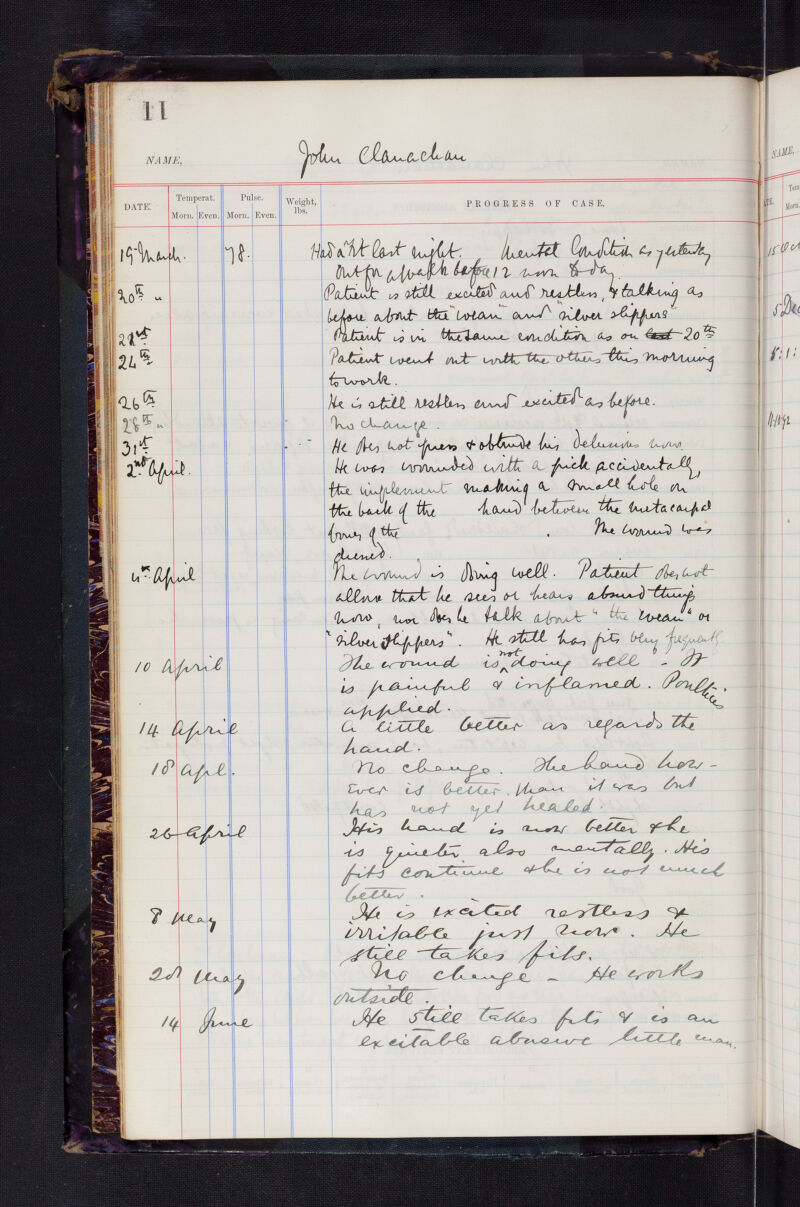 11
NAME, John Clanachan
DATE. Temperat. Pulse. Weight, lbs. PROGRESS OF CASE.
Morn. Even. Morn. Even.
19 March. 78. Had a fit last night. Mental Condition as yesterday
Out for a walk before 12 noon to day.
20th " Patient is still excited and restless, & talking as
before about the "wean" and "silver slippers"
22nd Patient is in the same condition as on last 20th
24th Patient went out with the others this morning
to work.
26th He is still restless and excited as before.
28th " No change.
31st He does not press & obtrude his delusions now
2nd April. He was wounded with a pick accidentally,
the implement making a small hole on
the back of the hand between the metacarpal
bones of the . The wound was
dressed.
4th April The wound is doing well. Patient does not
allow that he sees or hears absurd things
now, nor does he talk about "the wean" or
"silver slippers". He still has fits very frequently
10 April The wound is not doing well - It
is painful & inflamed. Poultices
applied.
14 April A little better as regards the
hand.
18 Apl. No change. The hand how-
ever is better than it was but
has not yet healed.
26 April His hand is now better & he
is quieter also mentally. His
fits continue & he is not much
better.
8 May He is excited restless &
irritable just now. He
still takes fits.
28 May No change - He works
outside.
14 June He still takes fits & is an
excitable abusive little man.
NAME,
Tem
Morn.
15 Oct
5 Dec